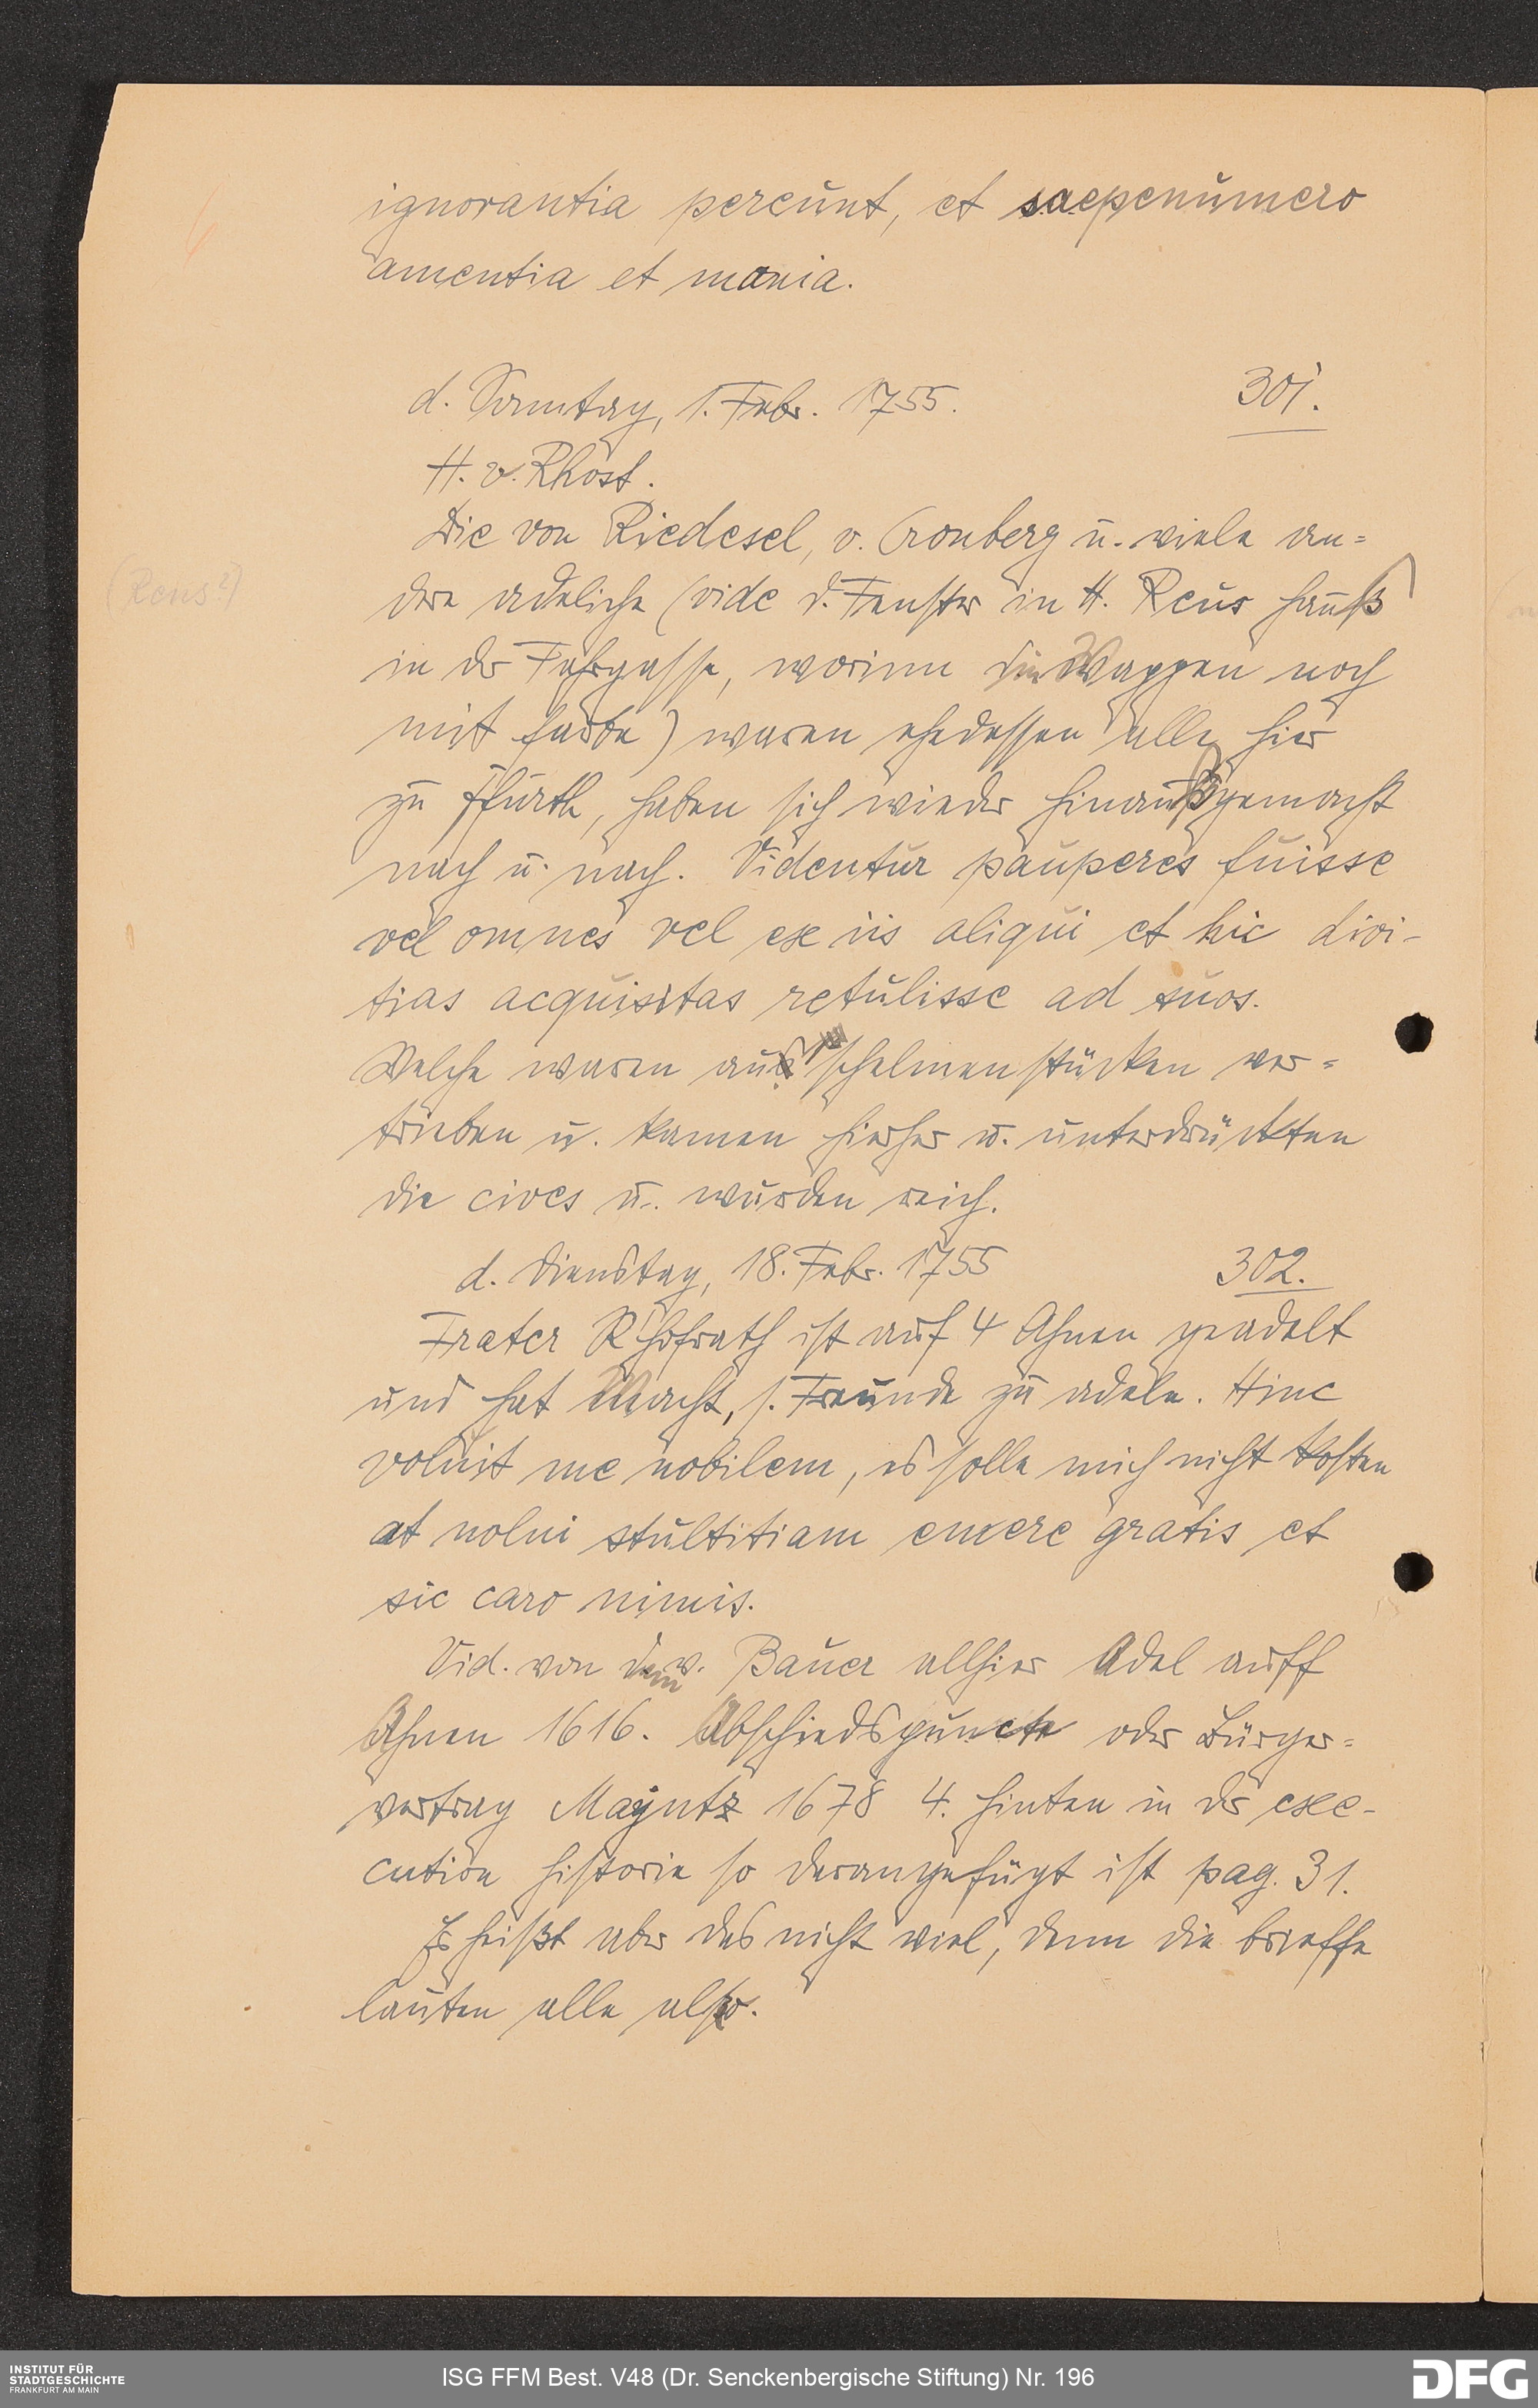 ignorantia pereunt, et saepenumero
amentia et mania.
d. Samstag, 1. Febr. 1755.
301.
H. v. Rhost.
Die von Riedesel, v. Cronberg u. viele an=
dere adeliche (vide d. Fenster in H. Reus hauß
(Rens?)
in der Fahrgasse, worinn die Wappen noch
mit farbe) waren ehedessen alle hier
zu Ffurth, haben sich wieder hinaußgemacht
nach u. nach. Videntur pauperes fuisse
vel omnes vel ex iis aliqui et hic divi-
tias acquisitas retulisse ad suos.
Welche waren aus schelmenstücken ver=
trieben u. kamen hierher u. unterdrückten
die cives u. wurden reich.
d. Dienstag, 18. Febr. 1755
302.
Frater R hofrath ist auf 4 Ahnen geadelt
und hat Macht, s. Freunde zu adeln. Hinc
voluit me nobilem, es solle mich nicht kosten
at nolui stultitiam emere gratis et
sic caro nimis.
Vid. von dem v. Bauer allhier Adel auff
Ahnen 1616. Abschiedspuncte oder Bürger=
vertrag Mayntz 1678 4. hinten in der exe-
cution historie so darangefügt ist pag. 31.
Es heißt aber das nicht viel, denn die brieffe
lauten alle also.
INSTITUT FÜR
STADTGESCHICHTE
FRANKFURT AM MAIN
ISG FFM Best. V48 (Dr. Senckenbergische Stiftung) Nr. 196
DFG